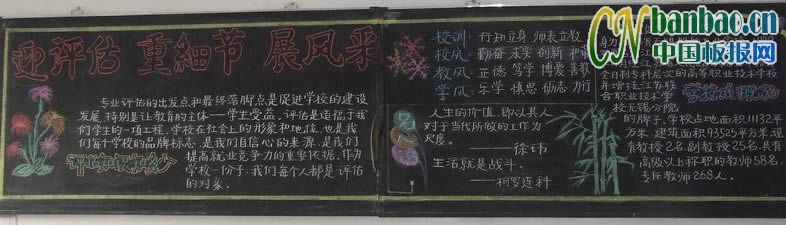 迎评估 重細节 展风采
专业评估的出发点和最终落脚点是促进学校的建设
发展,特别是让教育的主体——学生受益。评估是造福于我
们学生的一项工程,学校在社会上的形象和地位,也是我
们每个学校的品牌标志,是我们自信心的来源,是我们
提高就业竞争力的重要依据。作为
学校一份子,我们每个人都是评估
的对象。
校训: 行知立身 师表立教
校风: 勤奋 求实 创新 和谐
教风: 正德 笃学 博爱 善教
学风: 乐学 慎思 砺志 力行
人生的价值,即以其人
对于当代所做的工作为
尺度。
——徐玮
生活就是战斗。
——柯罗连科
全日制专科层次的高等职业技术学校
并常挂江苏联
合职业技术学
校无锡分院
的牌子。学校占地面积111132平
方米,建筑面积93525平方米。现
有教授2名,副教授25名,具有
高级以上称职的教师58名,
专任教师268人。
CNbanbao.cn
中国板报网